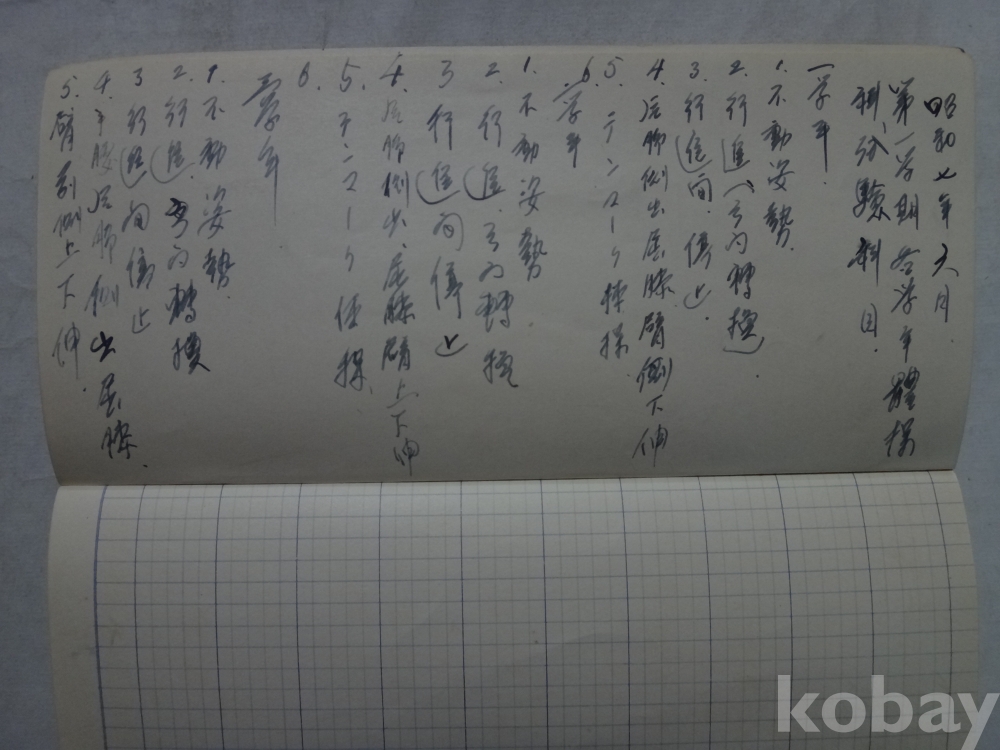 昭和七年六月
第一学期各学年體操
科試驗科目
一学年
1. 不動姿勢
2. 行進(方向轉換)
3. 行進間停止
4. 屈膝臂側下伸
5. デンマーク体操
6.
二学年
1. 不動姿勢
2. 行進方向轉換
3 行進間停止
4. 屈膝臂上下伸
5. デンマーク体操
6.
三学年
1. 不動姿勢
2. 行進方向轉換
3 行進間停止
4. 側出屈膝
5. 臂側上下伸
kobay